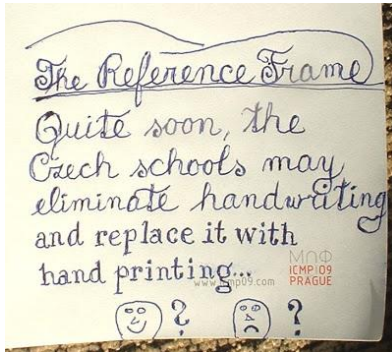 The Reference Frame
Quite soon, the
Czech schools may
eliminate handwriting
and replace it with
hand printing...
ΜΠΦ
ICMP|09
PRAGUE
www.icmp09.com
? ?